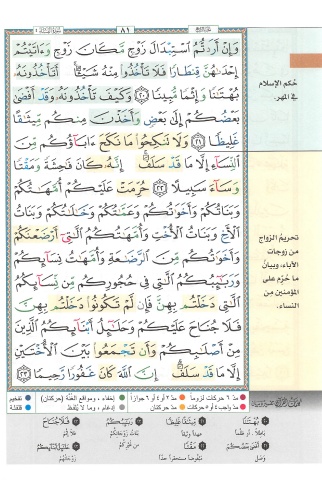 ٨١
وَإِنْ أَرَدتُّمُ ٱسْتِبْدَالَ زَوْجٍ مَّكَانَ زَوْجٍ وَءَاتَيْتُمْ
إِحْدَىٰهُنَّ قِنطَارًا فَلَا تَأْخُذُوا۟ مِنْهُ شَيْـًٔا ۚ أَتَأْخُذُونَهُۥ
بُهْتَـٰنًا وَإِثْمًا مُّبِينًا ٢٠ وَكَيْفَ تَأْخُذُونَهُۥ وَقَدْ أَفْضَىٰ
بَعْضُكُمْ إِلَىٰ بَعْضٍ وَأَخَذْنَ مِنكُم مِّيثَـٰقًا
غَلِيظًا ٢١ وَلَا تَنكِحُوا۟ مَا نَكَحَ ءَابَآؤُكُم مِّنَ
ٱلنِّسَآءِ إِلَّا مَا قَدْ سَلَفَ ۚ إِنَّهُۥ كَانَ فَـٰحِشَةً وَمَقْتًا
وَسَآءَ سَبِيلًا ٢٢ حُرِّمَتْ عَلَيْكُمْ أُمَّهَـٰتُكُمْ
وَبَنَاتُكُمْ وَأَخَوَٰتُكُمْ وَعَمَّـٰتُكُمْ وَخَـٰلَـٰتُكُمْ وَبَنَاتُ
ٱلْأَخِ وَبَنَاتُ ٱلْأُخْتِ وَأُمَّهَـٰتُكُمُ ٱلَّـٰتِىٓ أَرْضَعْنَكُمْ
وَأَخَوَٰتُكُم مِّنَ ٱلرَّضَـٰعَةِ وَأُمَّهَـٰتُ نِسَآئِكُمْ
وَرَبَـٰٓئِبُكُمُ ٱلَّـٰتِى فِى حُجُورِكُم مِّن نِّسَآئِكُمُ
ٱلَّـٰتِى دَخَلْتُم بِهِنَّ فَإِن لَّمْ تَكُونُوا۟ دَخَلْتُم بِهِنَّ
فَلَا جُنَاحَ عَلَيْكُمْ وَحَلَـٰٓئِلُ أَبْنَآئِكُمُ ٱلَّذِينَ
مِنْ أَصْلَـٰبِكُمْ وَأَن تَجْمَعُوا۟ بَيْنَ ٱلْأُخْتَيْنِ
إِلَّا مَا قَدْ سَلَفَ ۗ إِنَّ ٱللَّهَ كَانَ غَفُورًا رَّحِيمًا ٢٣
حُكم الإسلام
في المهر.
تحريمُ الزواج
من زوجات
الآباء، وبيانُ
ما حُرّم على
المؤمنين من
النساء.
مدّ ٦ حركات لزوماً
مدّ ٢ أو ٤ أو ٦ جوازاً
إخفاء، ومواقع الغُنَّة (حركتان)
تفخيم
مدّ واجب ٤ أو ٥ حركات
مدّ حركتان
إدغام، وما لا يُلفَظ
قلقلة